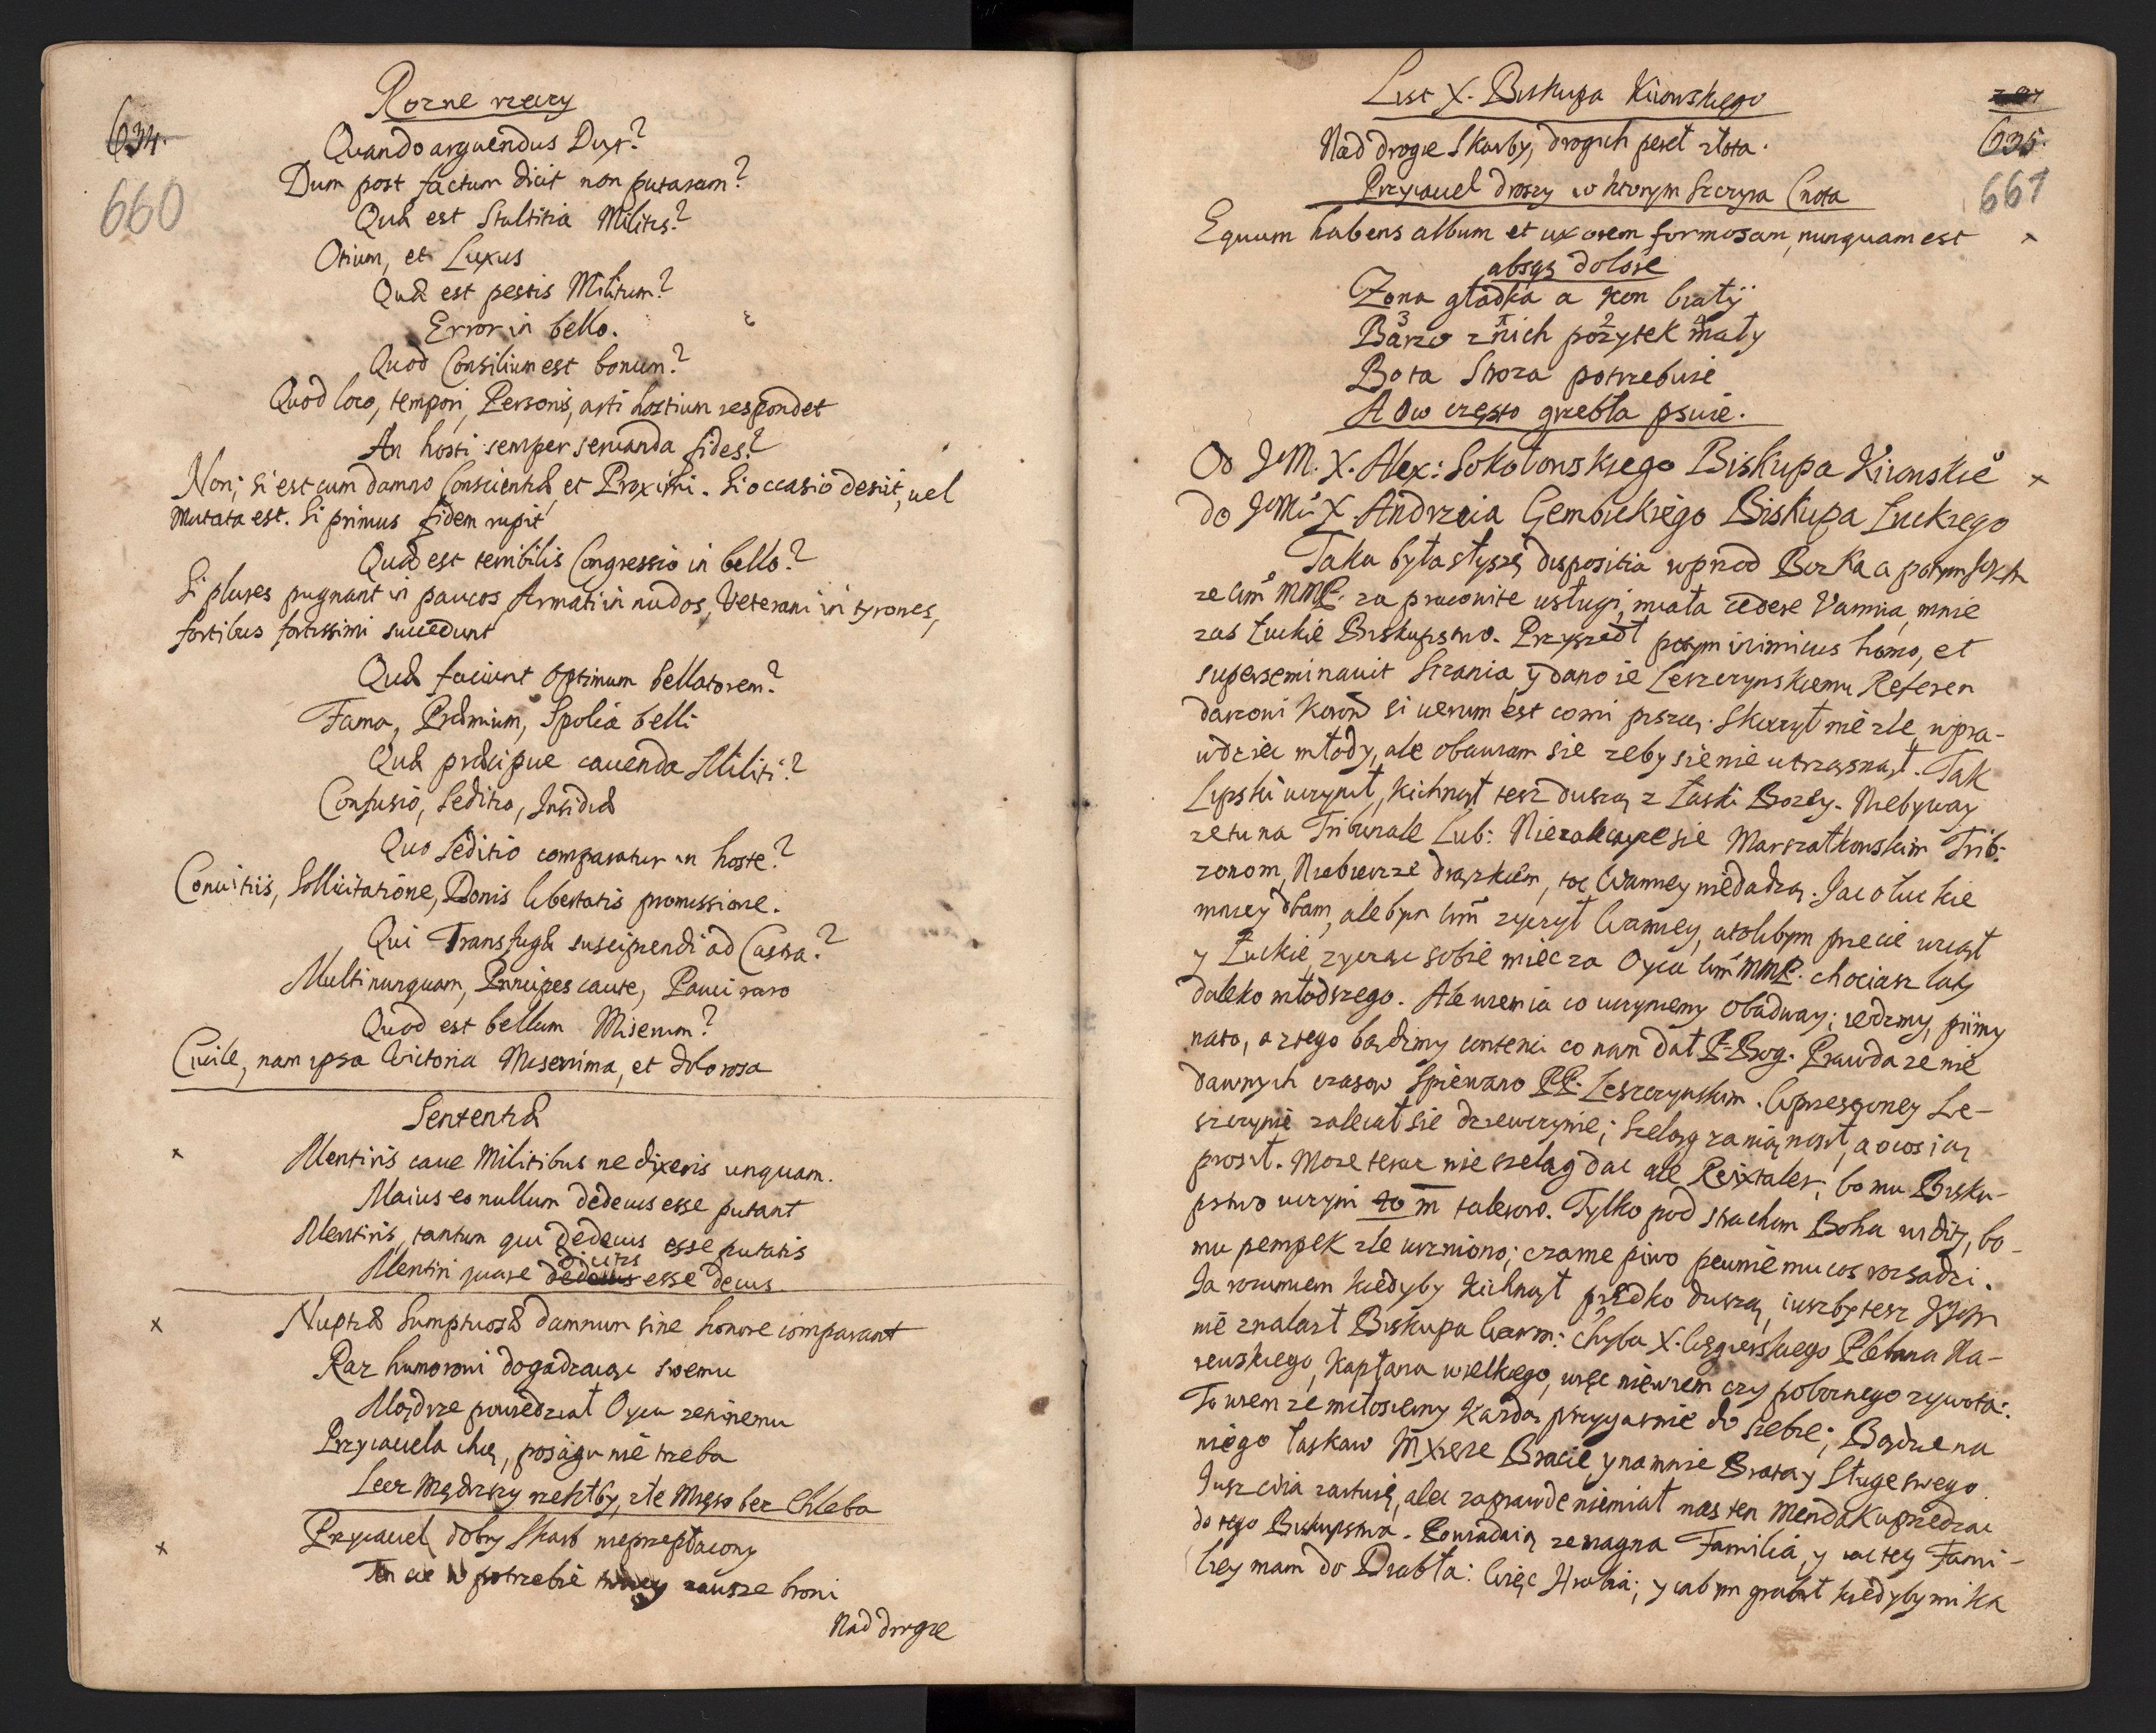 Rozne rzeczy
634.
660
Quando arguendus Dux?
Dum post factum dicit non putaram?
Quæ est Stultitia Militis?
Otium, et Luxus
Quæ est pestis Militum?
Error in bello.
Quod Consilium est bonum?
Quod loco, tempori, Personis, arti hostium respondet
An hosti semper seruanda fides?
Non; Si est cum damno Conscientiæ, et Proximi. Si occasio desiit, uel
mutata est. Si primus fidem rupit
Quæ est terribilis Congressio in bello?
Si plures pugnant in paucos Armati in nudos, Veterani in tyrones,
fortibus fortissimi succedunt
Quæ faciunt optimum bellatorem?
Fama, Præmium, Spolia belli
Quæ præcipue cauenda Militi?
Confusio, Seditio, Insidiæ
Quo Seditio comparatur in hoste?
Conuitiis, Sollicitatione, Donis libertatis promissione.
Qui Transfugæ suscipiendi ad Castra?
Multi nunquam, Principes caute, Pauci raro
Quod est bellum Miserum?
Ciuile, nam ipsa Victoria Miserrima, et dolorosa
Sententiæ
x Mentiris caue Militibus ne dixeris unquam.
Maius eo nullum dedecus esse putant
Mentiris, tantum qui dedecus esse putatis
dicitis
Mentiri quare dedecus esse decus.
x Nuptiæ Sumptuosæ damnum sine honore comparant
Raz humorowi dogadzaiąc swemu
Mądrze powiedział Oyca zeninemu
Przyiaciela chcę, posagu nie treba
Lecz Mędrszy rzekłby, złe Mięso bez Chleba
x Przyiaciel dobry Skarb nieprzepłacony
Ten cie w potrzebie zawsze broni
Nad drogie
List X. Biskupa Kiiowskiego
635.
661
Nad drogie Skarby, drogich pereł złota.
Przyiaciel droszy w ktorym Szczyra Cnota
Equum habens album et uxorem formosam, nunquam est x
absqz dolore
Zona gładka a kon białÿ
3 1 2 4
Barzo z nich pozytek mały
Bo ta Stroza potrzebuie
A ow często grzebła psuie.
Od JeM. X. Alex: Sokołowskiego Biskupa Kiiowskie° x
do JeMci X. Andrzeia Gembickiego Biskupa Łuckiego
Taka była słyszę dispositia wprzod Boska a potym
ze MMP. za pracowite usługi, miała redere Varmia, mnie
zas Łuckie Biskupstwo. Przyszedł potym inimicus homo, et
superseminauit Zizania, y dano ie Leszczynskiemu Referen
darzowi Koron si uerum est co mi piszą. Skoczył nie zle, wpra-
wdzie młody, ale obawiam sie zeby sie nie utrząsnął. Tak
Lipski uczynił, kichnął tesz duszą z łaski Bozey. Niebyway
ze tu na Tribunale Lub: Niezalecaycie sie Marszałkowskim Trib:
zonom, Niebierze, toc Warmiey niedadzą. Jac o Łuckie
mniey dbam, ale bym zyczył Warmiey, atolibym przecie wziął
y Łuckie, zycząc sobie miec za Oyca MMP. chociasz laty
daleko młodszego. Ale wiemia co uczyniemy obadway; iedzmy, piimy
nato, a z tego bądzmy contenci co nam dał P. Bog. Prawda ze nie
dawnych czasow spiewano PP. Leszczynskim. Wprzestroney Le-
szczynie zalecał sie dziewczynie; Szeląg za nią nosił, a o cos ią
prosił. Moze teraz nie szelag dac ale Reixtaler, bo mu Bisku-
pstwo uczyni 40 m talerow. Tylko pod strachem Boha widit, bo-
mu pempek zle urzniono; czarne piwo pewnie mu cos rozsadzi.
Ja rozumiem kiedyby kichnął prędko duszą, iuszby tesz
nie znalazł Biskupa Warm: chyba X. Węgierskiego Plebana Ma-
, Kapłana wielkiego, więc niewiem czy poboznego zywota:
To wiem ze miłosierny kazdą przygarnie do siebie; Bądzcie na
niego łaskaw MXieze Bracie, y na mnie Brata y Sługe swego.
Jusz ci ia zartuię, alec zaprawde niemiał nas ten Mendak uprzedzac
do tego Biskupstwa. Powiadaią ze magna Familia, y iac tey Fami-
liey mam do Diabła: Więc Hrabia; y iabym grabił kiedyby mi ka